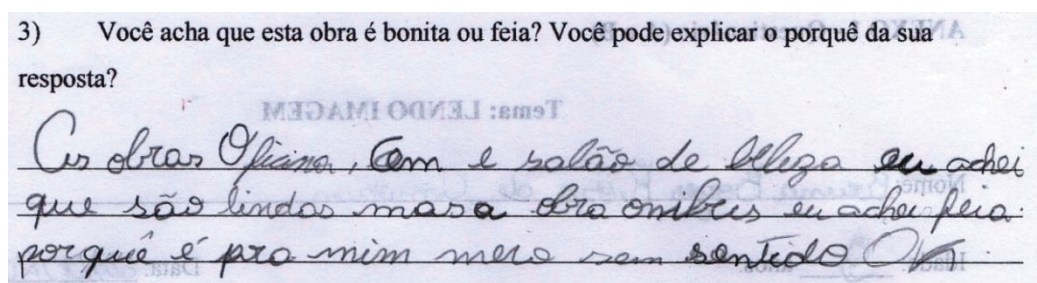 3) Você acha que esta obra é bonita ou feia? Você pode explicar o porquê da sua
resposta?
As obras Oficina, Com e salão de beleza eu achei
que são lindas mas a obra onibus eu achei feia
porquê é pra mim meio sem sentido